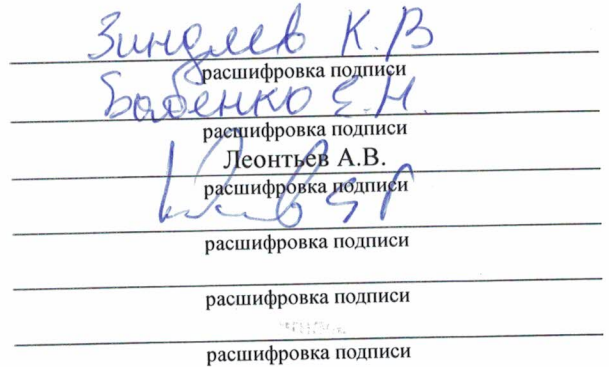 Зинделев К.В
расшифровка подписи
Бабенко Е.Н.
расшифровка подписи
Леонтьев А.В.
расшифровка подписи
расшифровка подписи
расшифровка подписи
расшифровка подписи